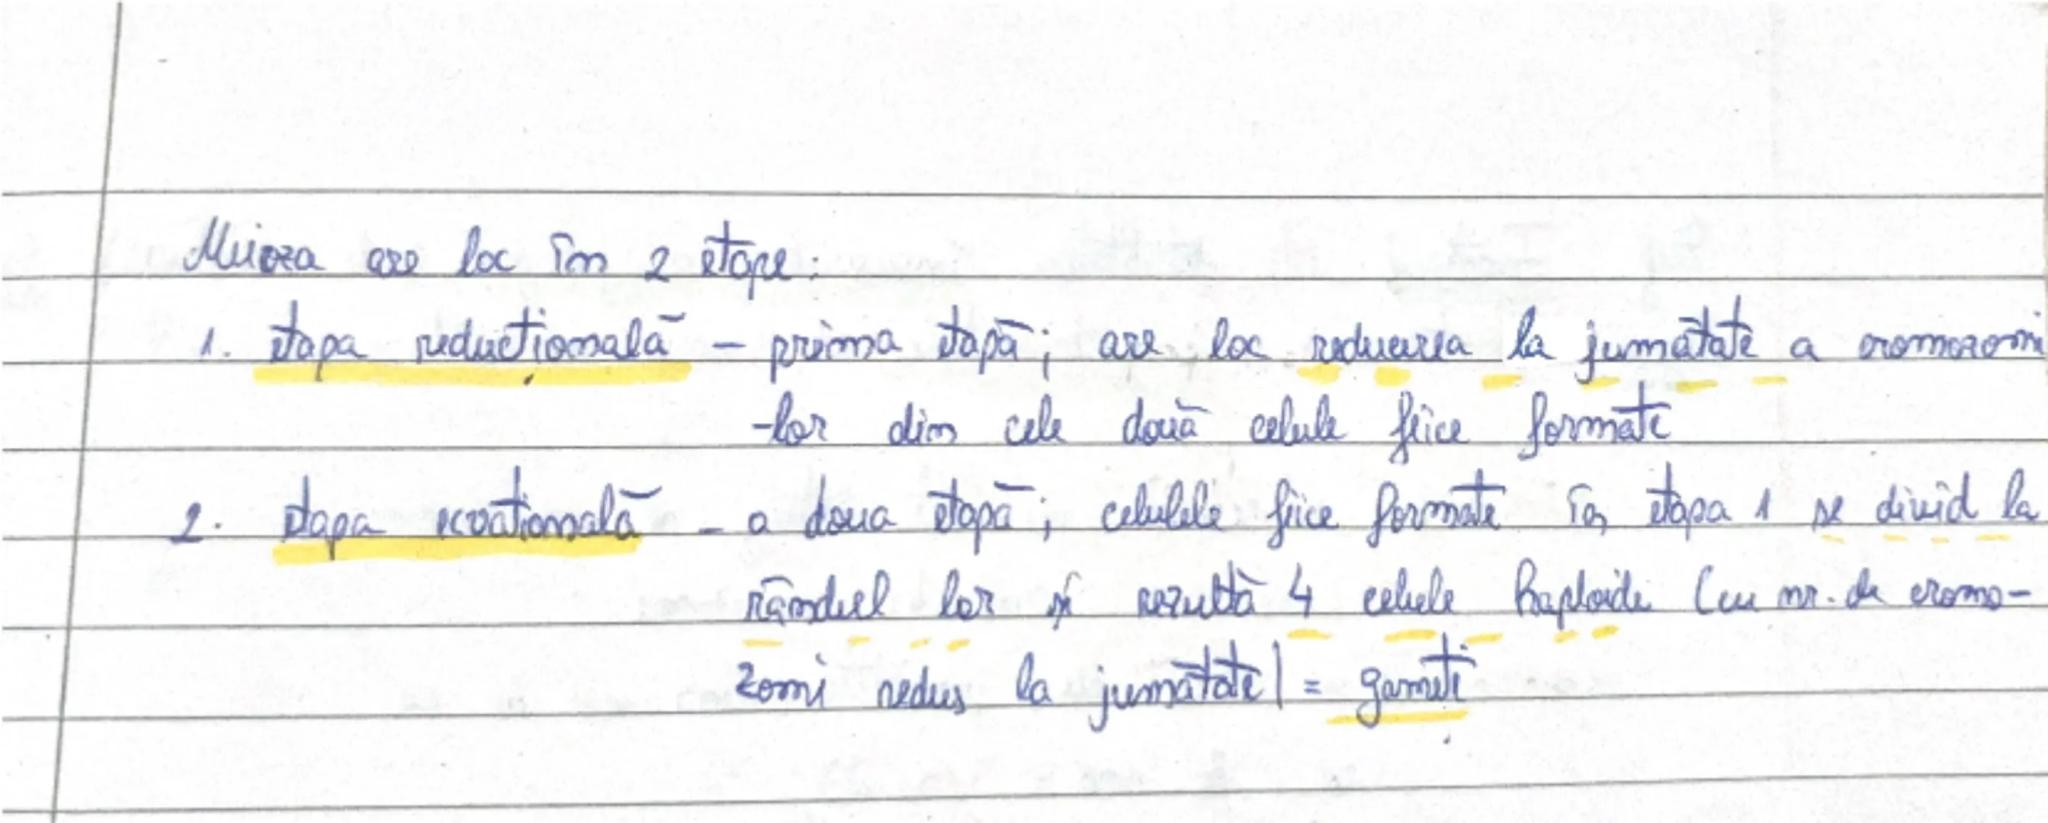 Meioza are loc în 2 etape:
1. etapa reducțională - prima etapă; are loc reducerea la jumătate a cromozomi
-lor din cele două celule fiice formate
2. etapa ecvațională - a doua etapă; celulele fiice formate în etapa 1 se divid la
rândul lor și rezultă 4 celule haploide (cu nr. de cromo-
zomi redus la jumătate) = gameți